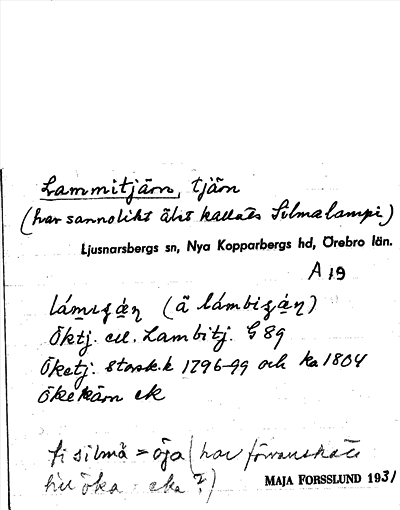 Lammitjärn, tjärn
(har sannolikt äldst kallats Silmalampi)
Ljusnarsbergs sn, Nya Kopparbergs hd, Örebro län.
A 19
(ä
Öktj. el. Lambitj. G 89
Öketj. Stosk.k 1796–99 och ka 1804
Öketkärn ek
fi silmä = öga (har förvanskats
hit öka : eka?)
MAJA FORSSLUND 1931